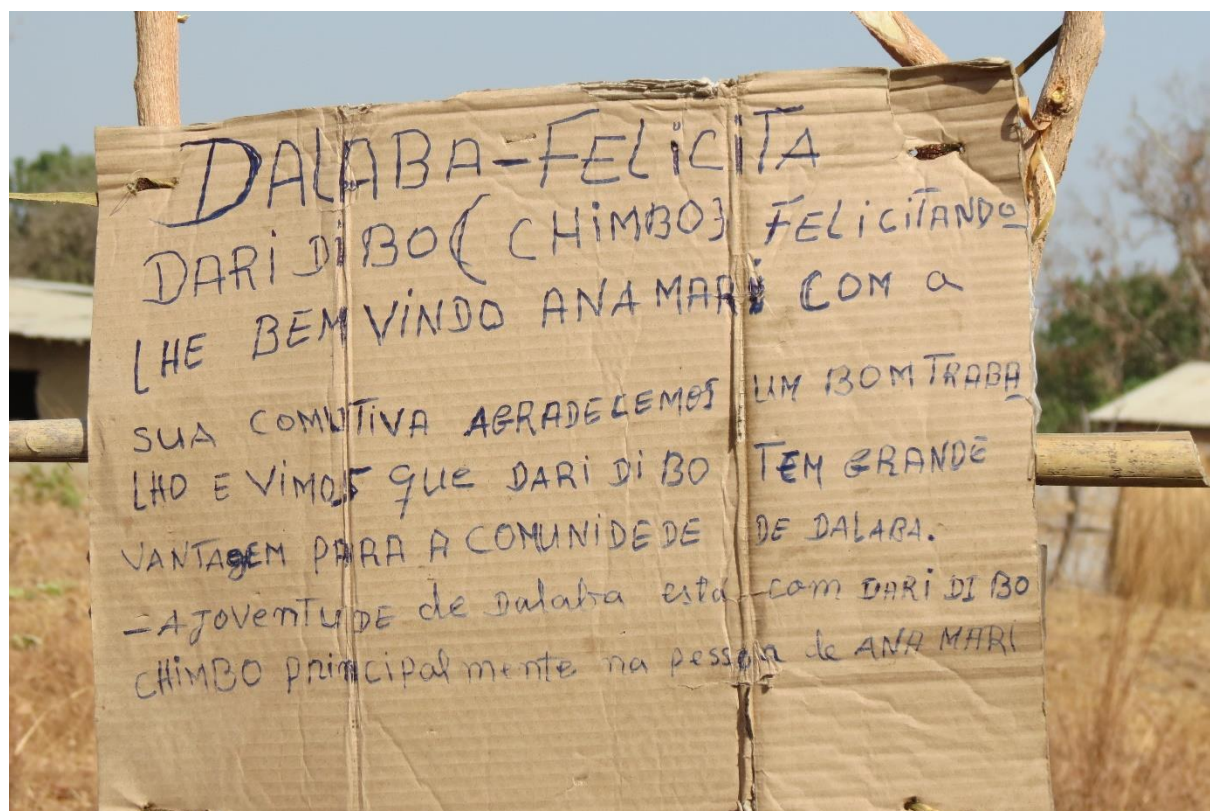 DALABA-FELiCiTA
DARi Di BO( CHiMBO) FELiCiTANDO
LHE BEM ViNDO ANA MARi COM a
SUA COMUTiVA AGRADECEMOS UM BOM TRABA
LHO E ViMOS QUE DARi Di BO TEM GRANDE
VANTAGEM PARA A COMUNiDEDE DE DALABA.
- A JOVENTUDE de Dalaba está com DARi DI BO
CHiMBO principalmente na pessoa de ANA MARi